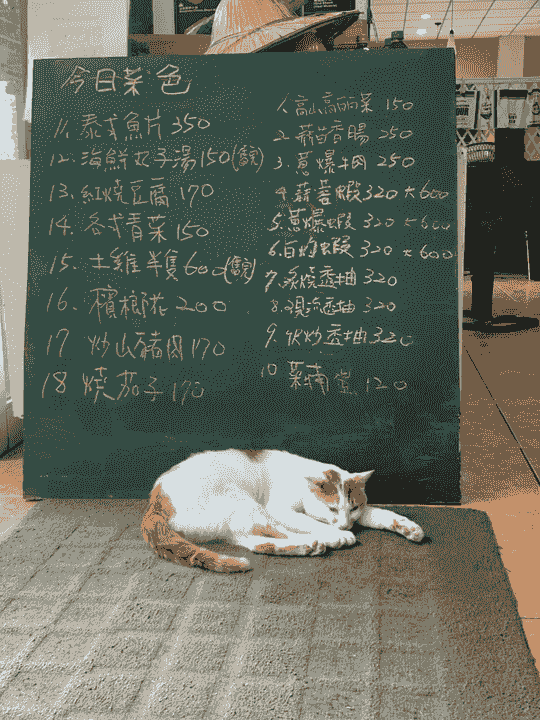 今日菜色
1. 高山高麗菜 150
2. 蒜苗香腸 250
3. 蔥爆牛肉 250
4. 蒜蓉蝦 320 大600
5. 蔥爆蝦 320 大600
6. 白灼蝦 320 大600
7. 炙燒透抽 320
8. 現流透抽 320
9. 快炒透抽 320
10 菜甫蛋 120
11. 泰式魚片 350
12. 海鮮丸子湯 150
13. 紅燒豆腐 170
14. 各式青菜 150
15. 土雞半隻 600
16. 檳榔花 200
17 炒山豬肉 170
18 燒茄子 170